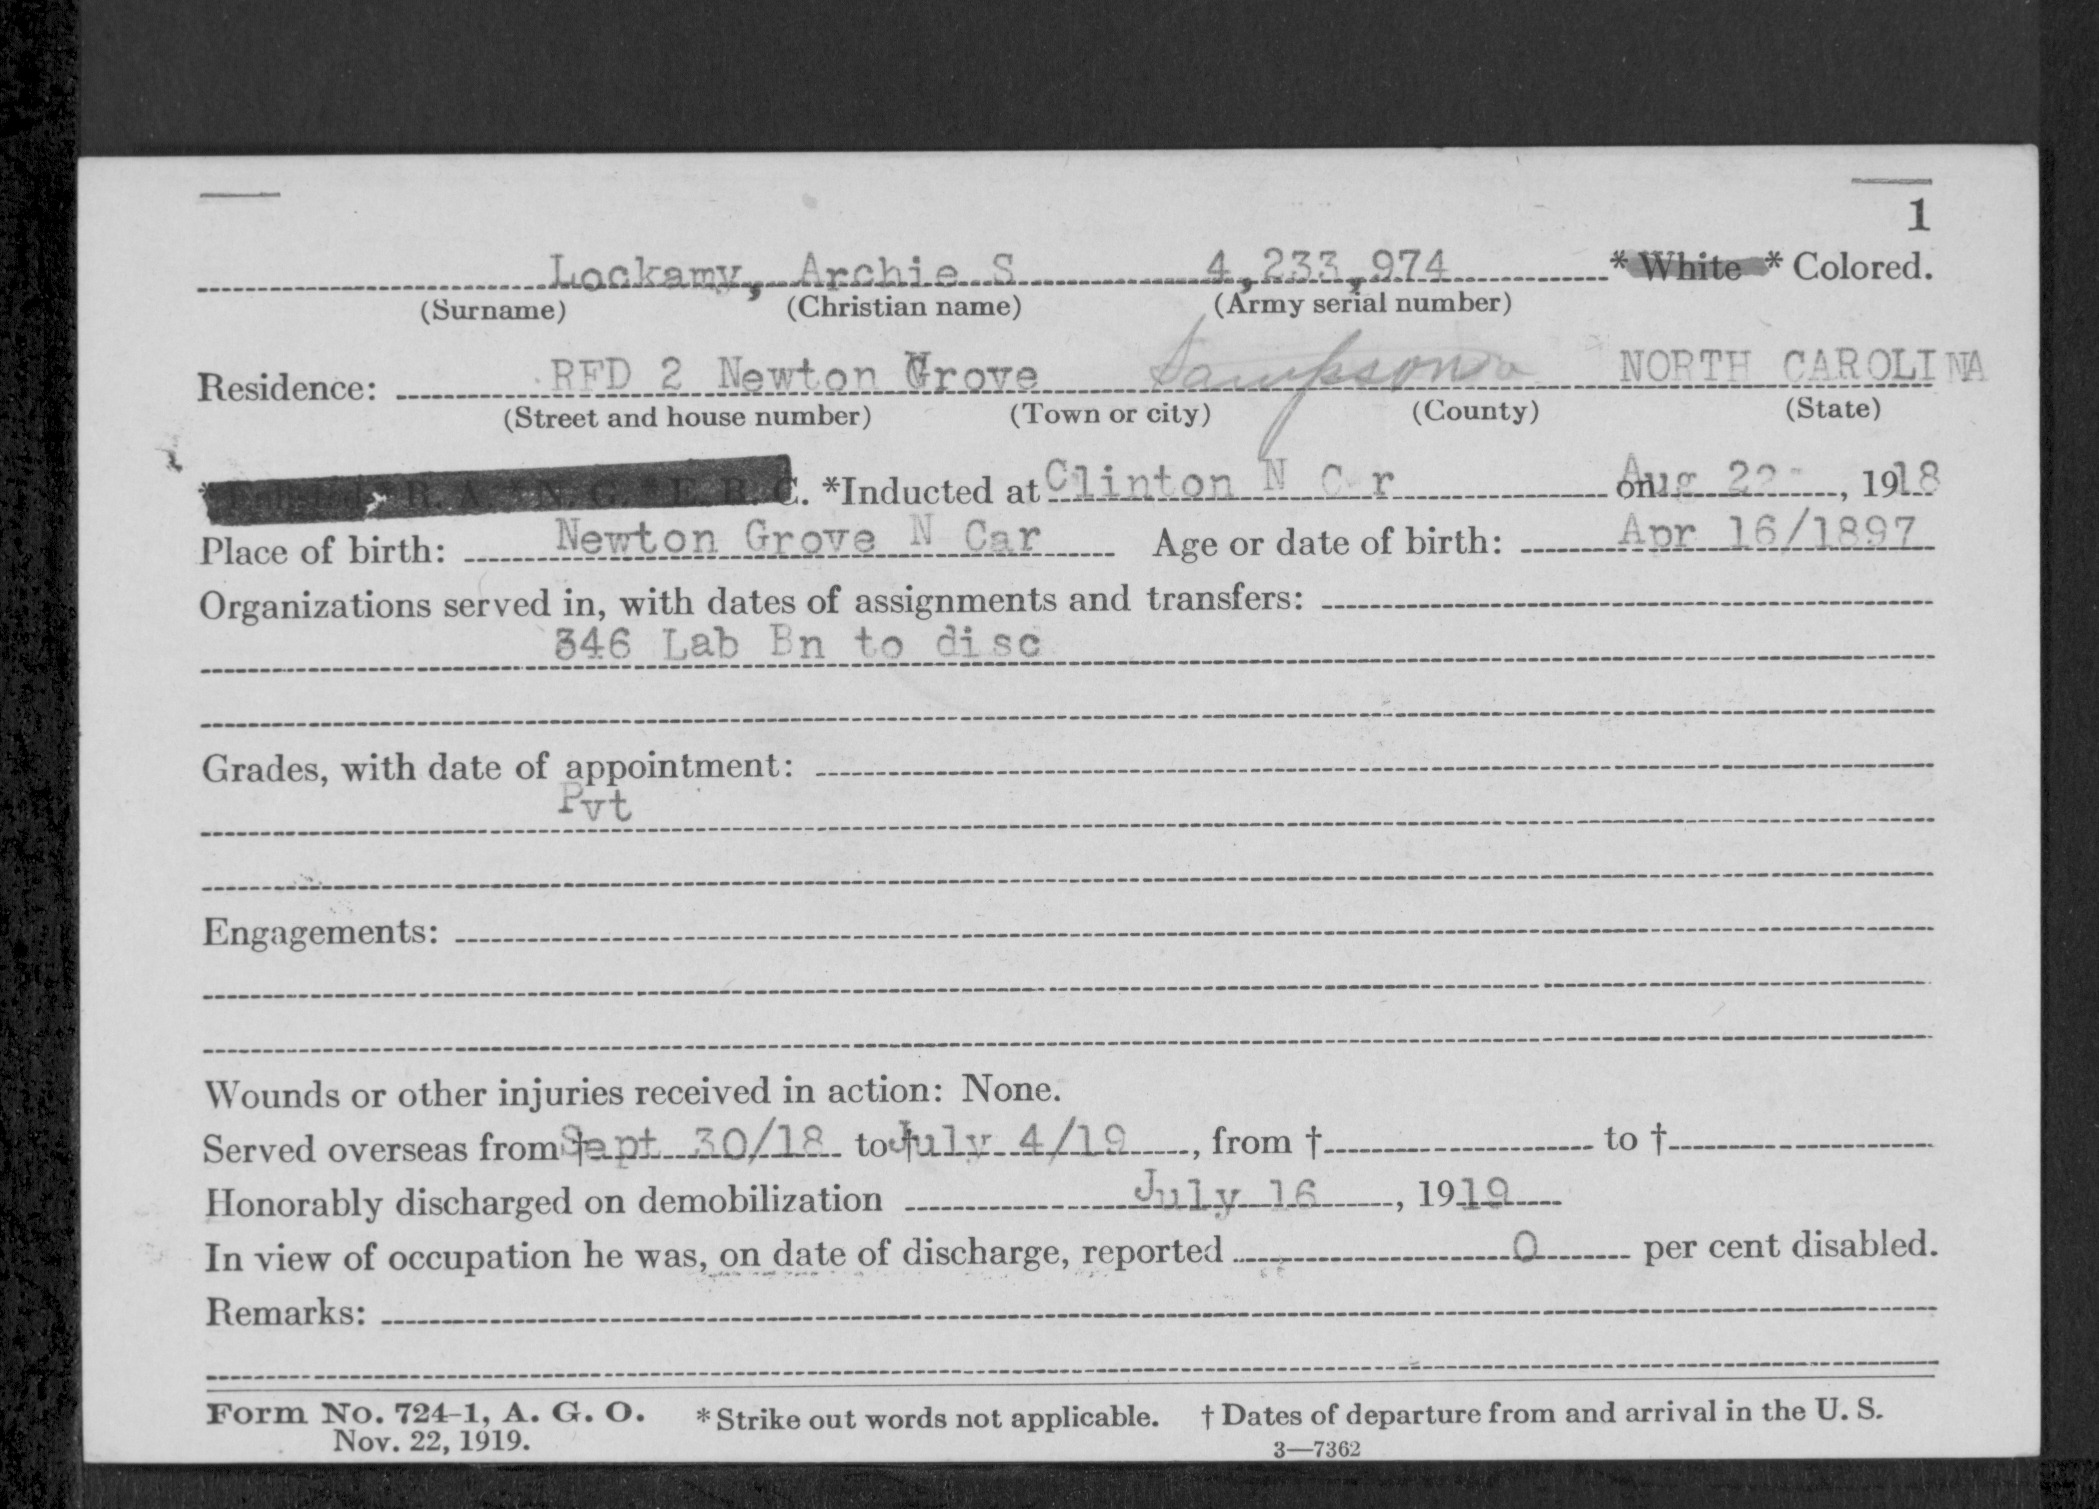 1
Lockamy, Archie S 4,233,974 * White * Colored.
(Surname) (Christian name) (Army serial number)
Residence: RFD 2 Newton Grove Sampson NORTH CAROLINA
(Street and house number) (Town or city) (County) (State)
* Enlisted * R. A. * N. G. * E. R. C. *Inducted at Clinton N C r on Aug 22, 1918
Place of birth: Newton Grove N Car Age or date of birth: Apr 16/1897
Organizations served in, with dates of assignments and transfers:
346 Lab Bn to disc
Grades, with date of appointment:
Pvt
Engagements:
Wounds or other injuries received in action: None.
Served overseas from † Sept 30/18 to † July 4/19, from † to †
Honorably discharged on demobilization July 16, 1919
In view of occupation he was, on date of discharge, reported 0 per cent disabled.
Remarks:
Form No. 724-1, A. G. O. * Strike out words not applicable. † Dates of departure from and arrival in the U. S.
Nov. 22, 1919. 3—7362